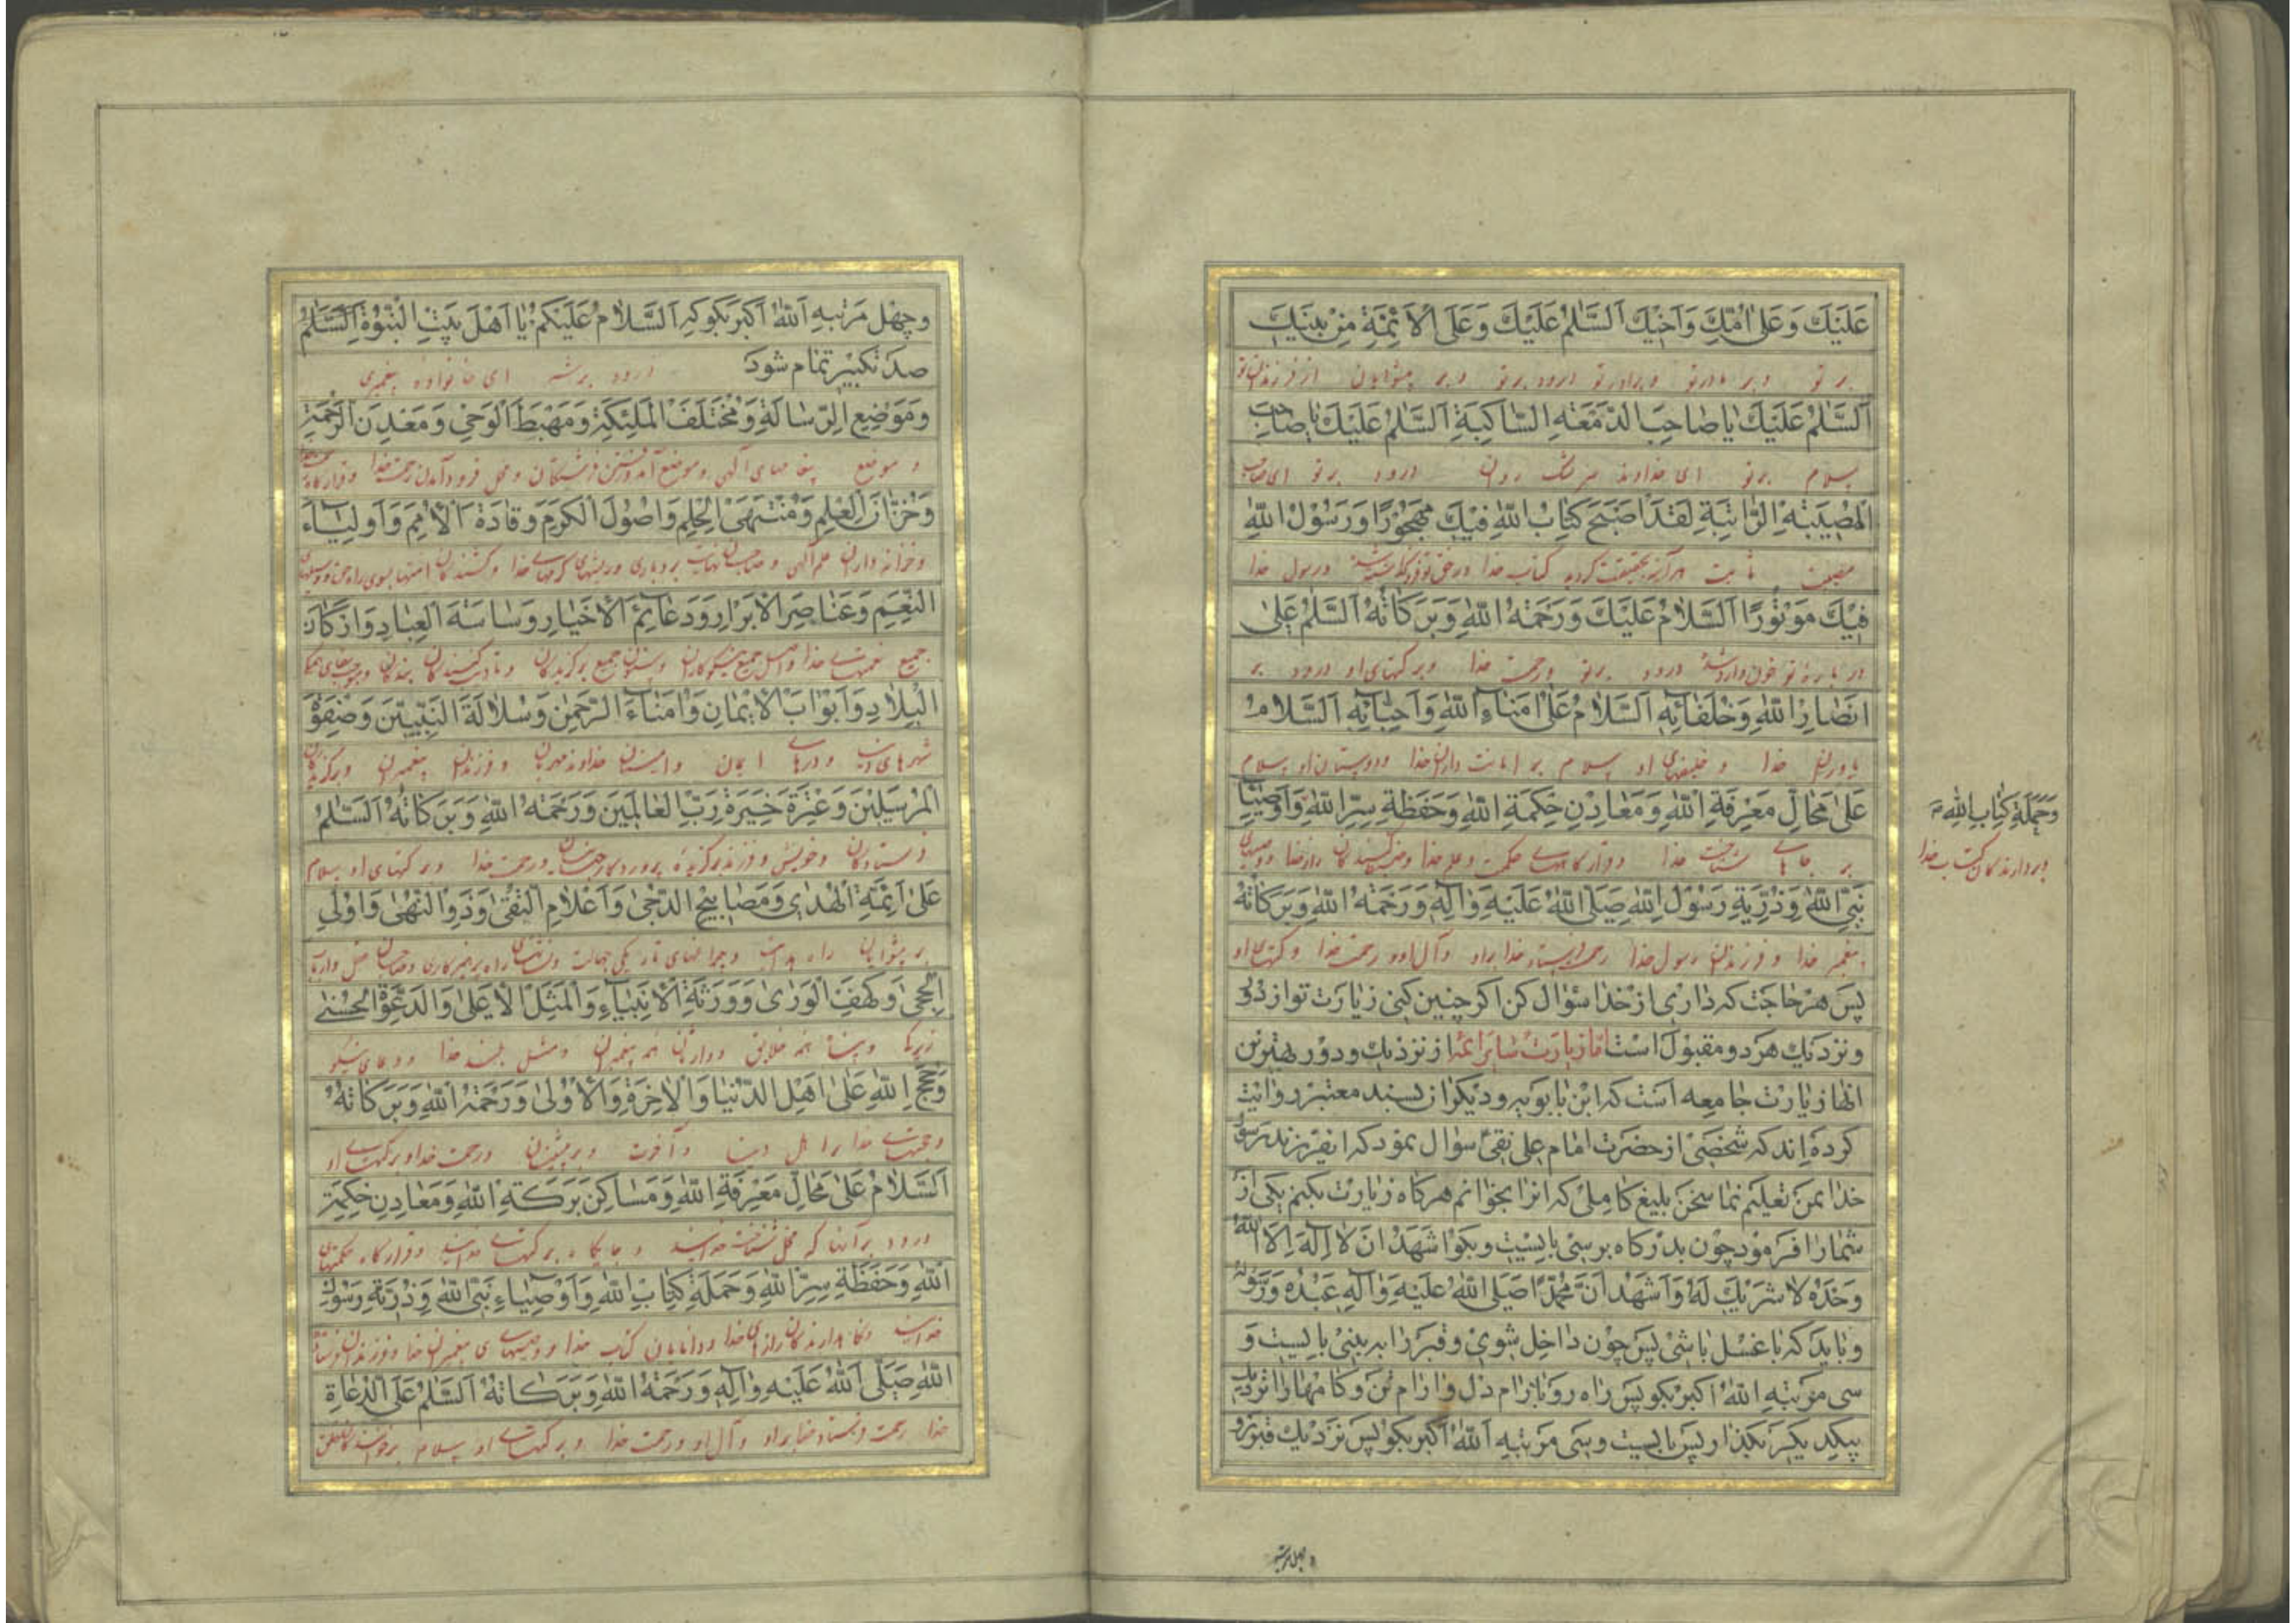 عَلَيْكَ وَعَلىٰ اُمِّكَ وَاَخيْكَ اَلسَّلٰمُ عَلَيْكَ وَعَلَى الْاَئِمَّةِ مِنْ بَنيْكَ
بر تو و بر مادر تو و برادر تو درود بر تو و بر پیشوایان از فرزندان تو
اَلسَّلٰمُ عَلَيْكَ يٰا صٰاحِبَ الدَّمْعَةِ السّٰاكِبَةِ اَلسَّلٰمُ عَلَيْكَ يٰا صٰاحِبَ
سلام بر تو ای خداوند سرشک روان درود بر تو ای صاحب
الْمُصيْبَةِ الرّٰاتِبَةِ لَقَدْ اَصْبَحَ كِتٰابُ اللّٰهِ فيْكَ مَهْجُوْرًا وَرَسُوْلُ اللّٰهِ
مصیبت ثابت هر آینه بتحقیقت کردید کتاب خدا در حق تو و رسول خدا
فيْكَ مَوْتُوْرًا اَلسَّلٰامُ عَلَيْكَ وَرَحْمَةُ اللّٰهِ وَبَرَكٰاتُهُ اَلسَّلٰمُ عَلىٰ
در باره تو خون دار شد درود بر تو و رحمت خدا و برکتهای او درود بر
اَنْصٰارِ اللّٰهِ وَخُلَفٰائِهِ اَلسَّلٰامُ عَلىٰ اُمَنٰاءِ اللّٰهِ وَاَحِبّٰائِهِ اَلسَّلٰامُ
یاوران خدا و خلیفهای او سلام بر امانت داران خدا و دوستان او سلام
عَلىٰ مَحٰالِّ مَعْرِفَةِ اللّٰهِ وَمَعٰادِنِ حِكْمَةِ اللّٰهِ وَحَفَظَةِ سِرِّ اللّٰهِ وَاَوْصِيٰاءِ
وَحَمَلَةِ كِتٰابِ اللّٰهِ
و بردارندگان کتاب خدا
بر جاهای شناخت خدا و قرارگاههای حکمت و علم خدا و حفظ کنندگان راز خدا و وصیهای
نَبِيِّ اللّٰهِ وَذُرِّيَةِ رَسُوْلِ اللّٰهِ صَلَّى اللّٰهُ عَلَيْهِ وَاٰلِهِ وَرَحْمَةُ اللّٰهِ وَبَرَكٰاتُهُ
پیغمبر خدا و فرزندان رسول خدا رحمت فرستد خدا بر او و آل او و رحمت خدا و برکتهای او
پس هر حاجت که داری از خدا سؤال کن اکر چنین کنی زیارت تو از دور
و نزدیك هر دو مقبول است اما زیارت سایر ائمه از نزدیك و دور بهترین
انها زیارت جامعه است که ابن بابویه و دیکران بسند معتبر روایت
کرده اند که شخصی از حضرت امام علی نقی سؤال نمود که ایفرزند رسول
خدا بمن تعلیم نما سخن بلیغ کاملی که انرا بخوانم هرکاه زیارت بکنم یکی از
شما را فرمود چون بدرکاه برسی بایست و بکو اَشْهَدُ اَنْ لٰا اِلٰهَ اِلَّا اللّٰهُ
وَحْدَهُ لٰا شَرِيْكَ لَهُ وَاَشْهَدُ اَنَّ مُحَمَّدًا صَلَّى اللّٰهُ عَلَيْهِ وَاٰلِهِ عَبْدُهُ وَرَسُوْلُهُ
و باید که با غسل باشی پس چون داخل شوی و قبر را به بینی بایست و
سی مرتبه اَللّٰهُ اَكْبَرُ بکو پس راه رو بارام دل و ارام تن و کامها را نزدیك
بیکدیکر بکذار پس بایست و سی مرتبه اَللّٰهُ اَكْبَرُ بکو پس نزدیك قبر رو
و چهل مرتبه
و چهل مرتبه اَللّٰهُ اَكْبَرُ بکو که اَلسَّلٰامُ عَلَيْكُمْ يٰا اَهْلَ بَيْتِ النُّبُوَّةِ اَلسَّلٰمُ
صد تکبیر تمام شود درود بر شما ای خانواده پیغمبری
وَمَوْضِعَ الرِّسٰالَةِ وَمُخْتَلَفَ الْمَلٰئِكَةِ وَمَهْبَطَ الْوَحْيِ وَمَعْدِنَ الرَّحْمَةِ
و موضع پیغامهای آلهی و موضع آمد و رفتن فرشتگان و محل فرود آمدن و قرارگاه
وَخُزّٰانَ الْعِلْمِ وَمُنْتَهَى الْحِلْمِ وَاُصُوْلَ الْكَرَمِ وَقٰادَةَ الْاُمَمِ وَاَوْلِيٰاءَ
و خزانه داران علم آلهی و صاحبان نهایت بردباری و ریشهای کرمهای خدا و کشندگان امتها بسوی راه حق و
النِّعَمِ وَعَنٰاصِرَ الْاَبْرٰارِ وَدَعٰائِمَ الْاَخْيٰارِ وَسٰاسَةَ الْعِبٰادِ وَاَرْكٰانَ
جمیع نعمتهای خدا و اصل جمیع نیکوکاران و ستون جمیع برگزیدگان و تادیب کنندگان بندگان
الْبِلٰادِ وَاَبْوٰابَ الْاِيْمٰانِ وَاُمَنٰاءَ الرَّحْمٰنِ وَسُلٰالَةَ النَّبِيّيْنَ وَصَفْوَةَ
شهرهای و درهای ایمان و امینان خداوند مهربان و فرزندان پیغمبران و برگزیدگان
الْمُرْسَليْنَ وَعِتْرَةَ خِيَرَةِ رَبِّ الْعٰالَميْنَ وَرَحْمَةُ اللّٰهِ وَبَرَكٰاتُهُ اَلسَّلٰمُ
فرستادگان و خویش و فرزند برگزیده پروردگار جهانیان و رحمت خدا و برکتهای او سلام
عَلىٰ اَئِمَّةِ الْهُدىٰ وَمَصٰابيْحِ الدُّجىٰ وَاَعْلٰامِ التُّقىٰ وَذَوِي النُّهىٰ وَاُولِي
بر پیشوایان راه هدایت و چراغهای تاریکی جهالت و نشانهای راه پرهیزکاری و صاحبان عقل و ارباب
الْحِجىٰ وَكَهْفِ الْوَرىٰ وَوَرَثَةِ الْاَنْبِيٰاءِ وَالْمَثَلِ الْاَعْلىٰ وَالدَّعْوَةِ الْحُسْنىٰ
زیرکی و پناه همه خلایق و وارثان همه پیغمبران و مثل بلند خدا و دعای نیکو
وَحُجَجِ اللّٰهِ عَلىٰ اَهْلِ الدُّنْيٰا وَالْاٰخِرَةِ وَالْاُوْلىٰ وَرَحْمَةُ اللّٰهِ وَبَرَكٰاتُهُ
و حجتهای خدا بر اهل دنیا و آخرت و بر پیشینان و رحمت خدا و برکتهای او
اَلسَّلٰامُ عَلىٰ مَحٰالِّ مَعْرِفَةِ اللّٰهِ وَمَسٰاكِنِ بَرَكَةِ اللّٰهِ وَمَعٰادِنِ حِكْمَةِ
درود بر آنها که محل شناخت خدایند و جایگاه برکتهای خدایند و قرارگاه حکمتهای
اللّٰهِ وَحَفَظَةِ سِرِّ اللّٰهِ وَحَمَلَةِ كِتٰابِ اللّٰهِ وَاَوْصِيٰاءِ نَبِيِّ اللّٰهِ وَذُرِّيَةِ رَسُوْلِ
خدایند و نگاهدارندگان رازهای خدا و دانایان کتاب خدا و وصیهای پیغمبران خدا و فرزندان فرستاده
اللّٰهِ صَلَّى اللّٰهُ عَلَيْهِ وَاٰلِهِ وَرَحْمَةُ اللّٰهِ وَبَرَكٰاتُهُ اَلسَّلٰمُ عَلَى الدُّعٰاةِ
خدا رحمت فرستد خدا بر او و آل او و رحمت خدا و برکتهای او سلام بر خوانندگان